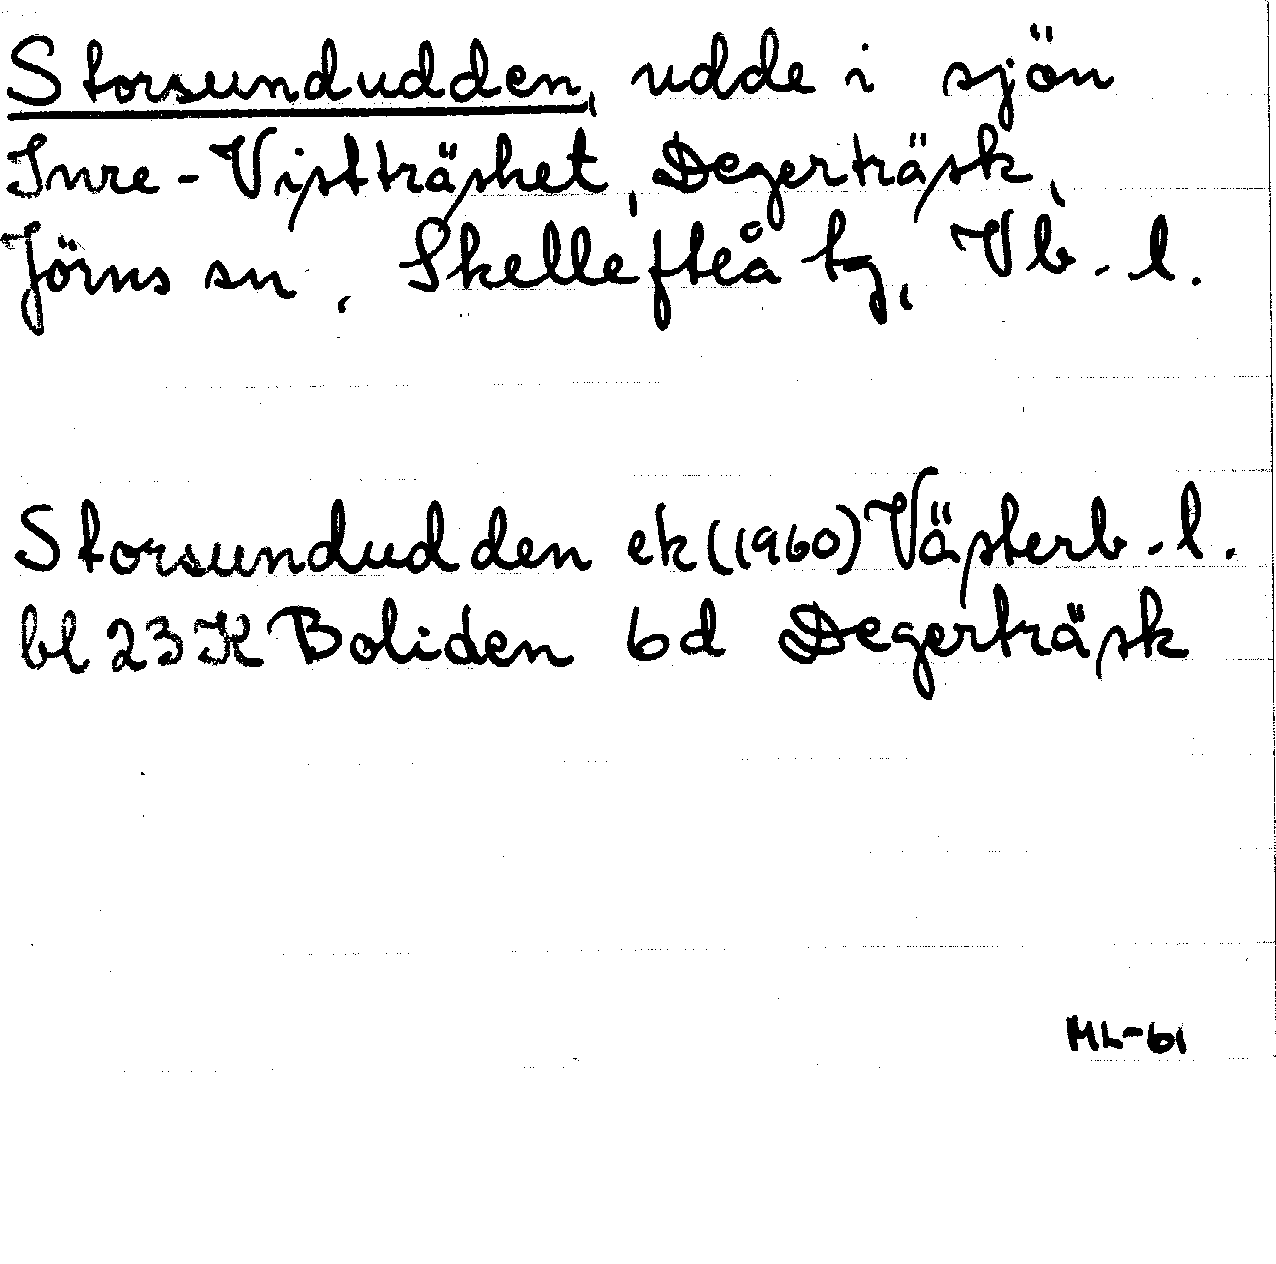 Storsundudden, udde i sjön
Inre-Vistträsket, Degerträsk,
Jörns sn, Skellefteå tg, Vb.l.
Storsundudden ek (1960) Västerb.l.
bl 23 K Boliden 6d Degerträsk
ML-61